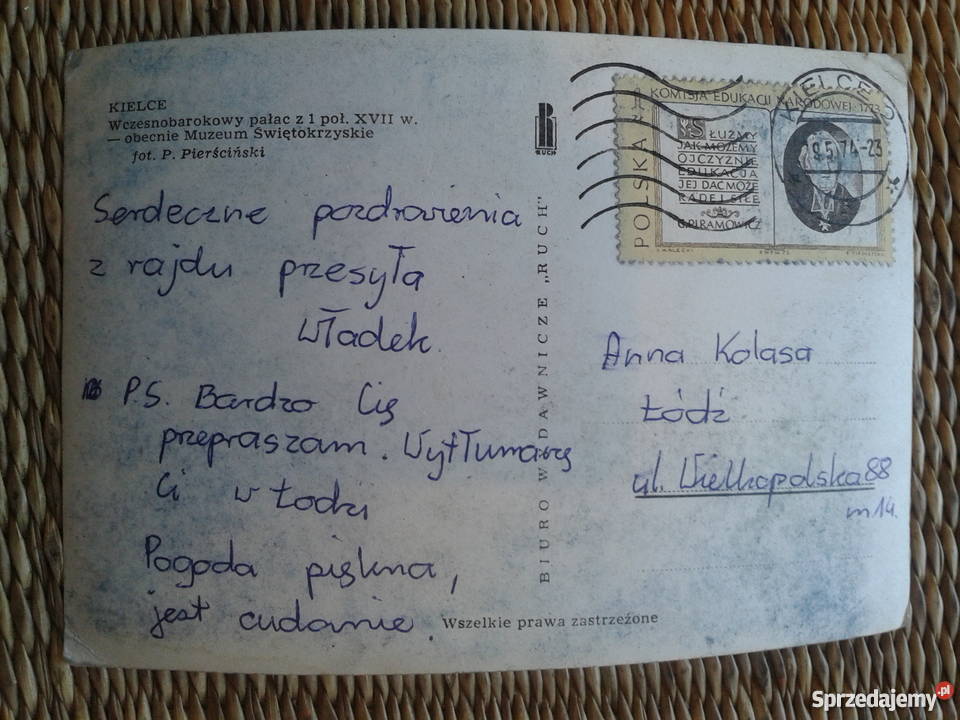 KIELCE
Wczesnobarokowy pałac z 1 poł. XVII w.
— obecnie Muzeum Świętokrzyskie
fot. P. Pierściński
RUCH
Serdeczne pozdrowienia
z rajdu przesyła
Władek.
P.S. Bardzo Cię
przepraszam. Wytłumaczę
Ci w Łodzi
Pogoda piękna,
jest cudownie.
BIURO WYDAWNICZE „RUCH"
Wszelkie prawa zastrzeżone
KIELCE 2
9.5.74-23
POLSKA 1 ZŁ
KOMISJA EDUKACJI NARODOWEJ 1773
SŁUŻMY
JAK MOŻEMY
OJCZYZNIE
EDUKACJA
JEJ DAĆ MOŻE
RADE I SIŁE
G. PIRAMOWICZ
Anna Kolasa
Łódź
ul. Wielkopolska 88
m 14.
Sprzedajemy.pl